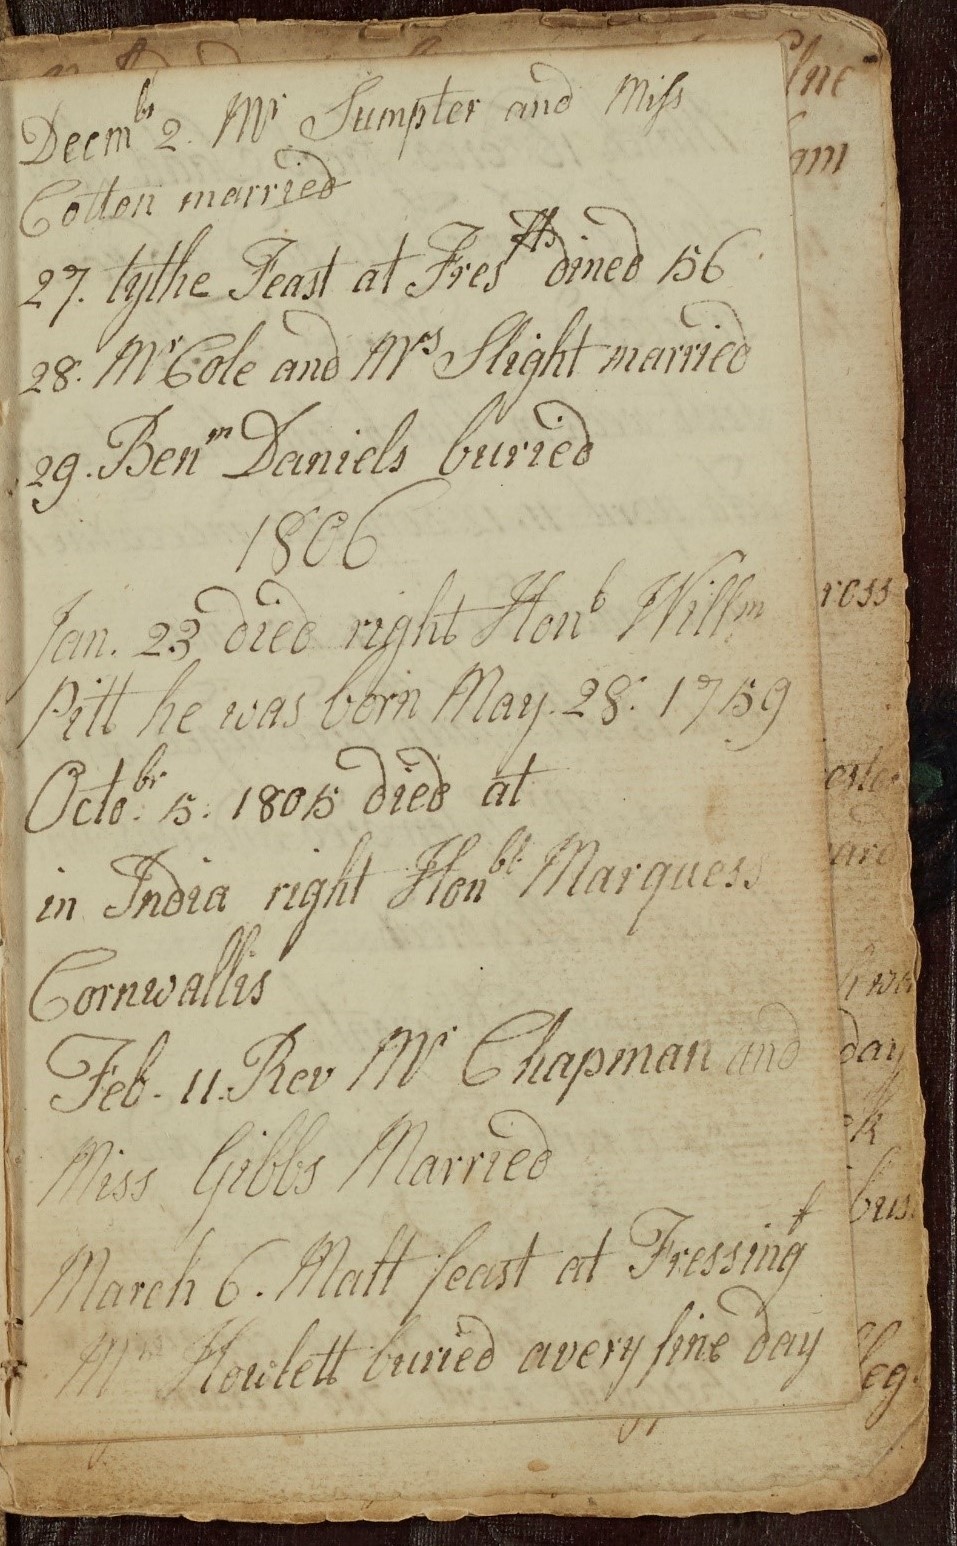 Decm^br 2. M^r Sumpter and Miss
Cotton married
27. tythe Feast at Fres dined 156
28. M^r Cole and M^rs Slight married
29. Ben^m Daniels buried
1806
Jan. 23 died right Hon^b Will^m
Pitt he was born May. 28. 1759
Octo^br. 5. 1805 died at
in India right Hon^bl Marquess
Cornwallis
Feb. 11. Rev M^r Chapman and
Miss Gibbs Married
March 6. Matt feast at Fressing^f
Howlett buried a very fine day